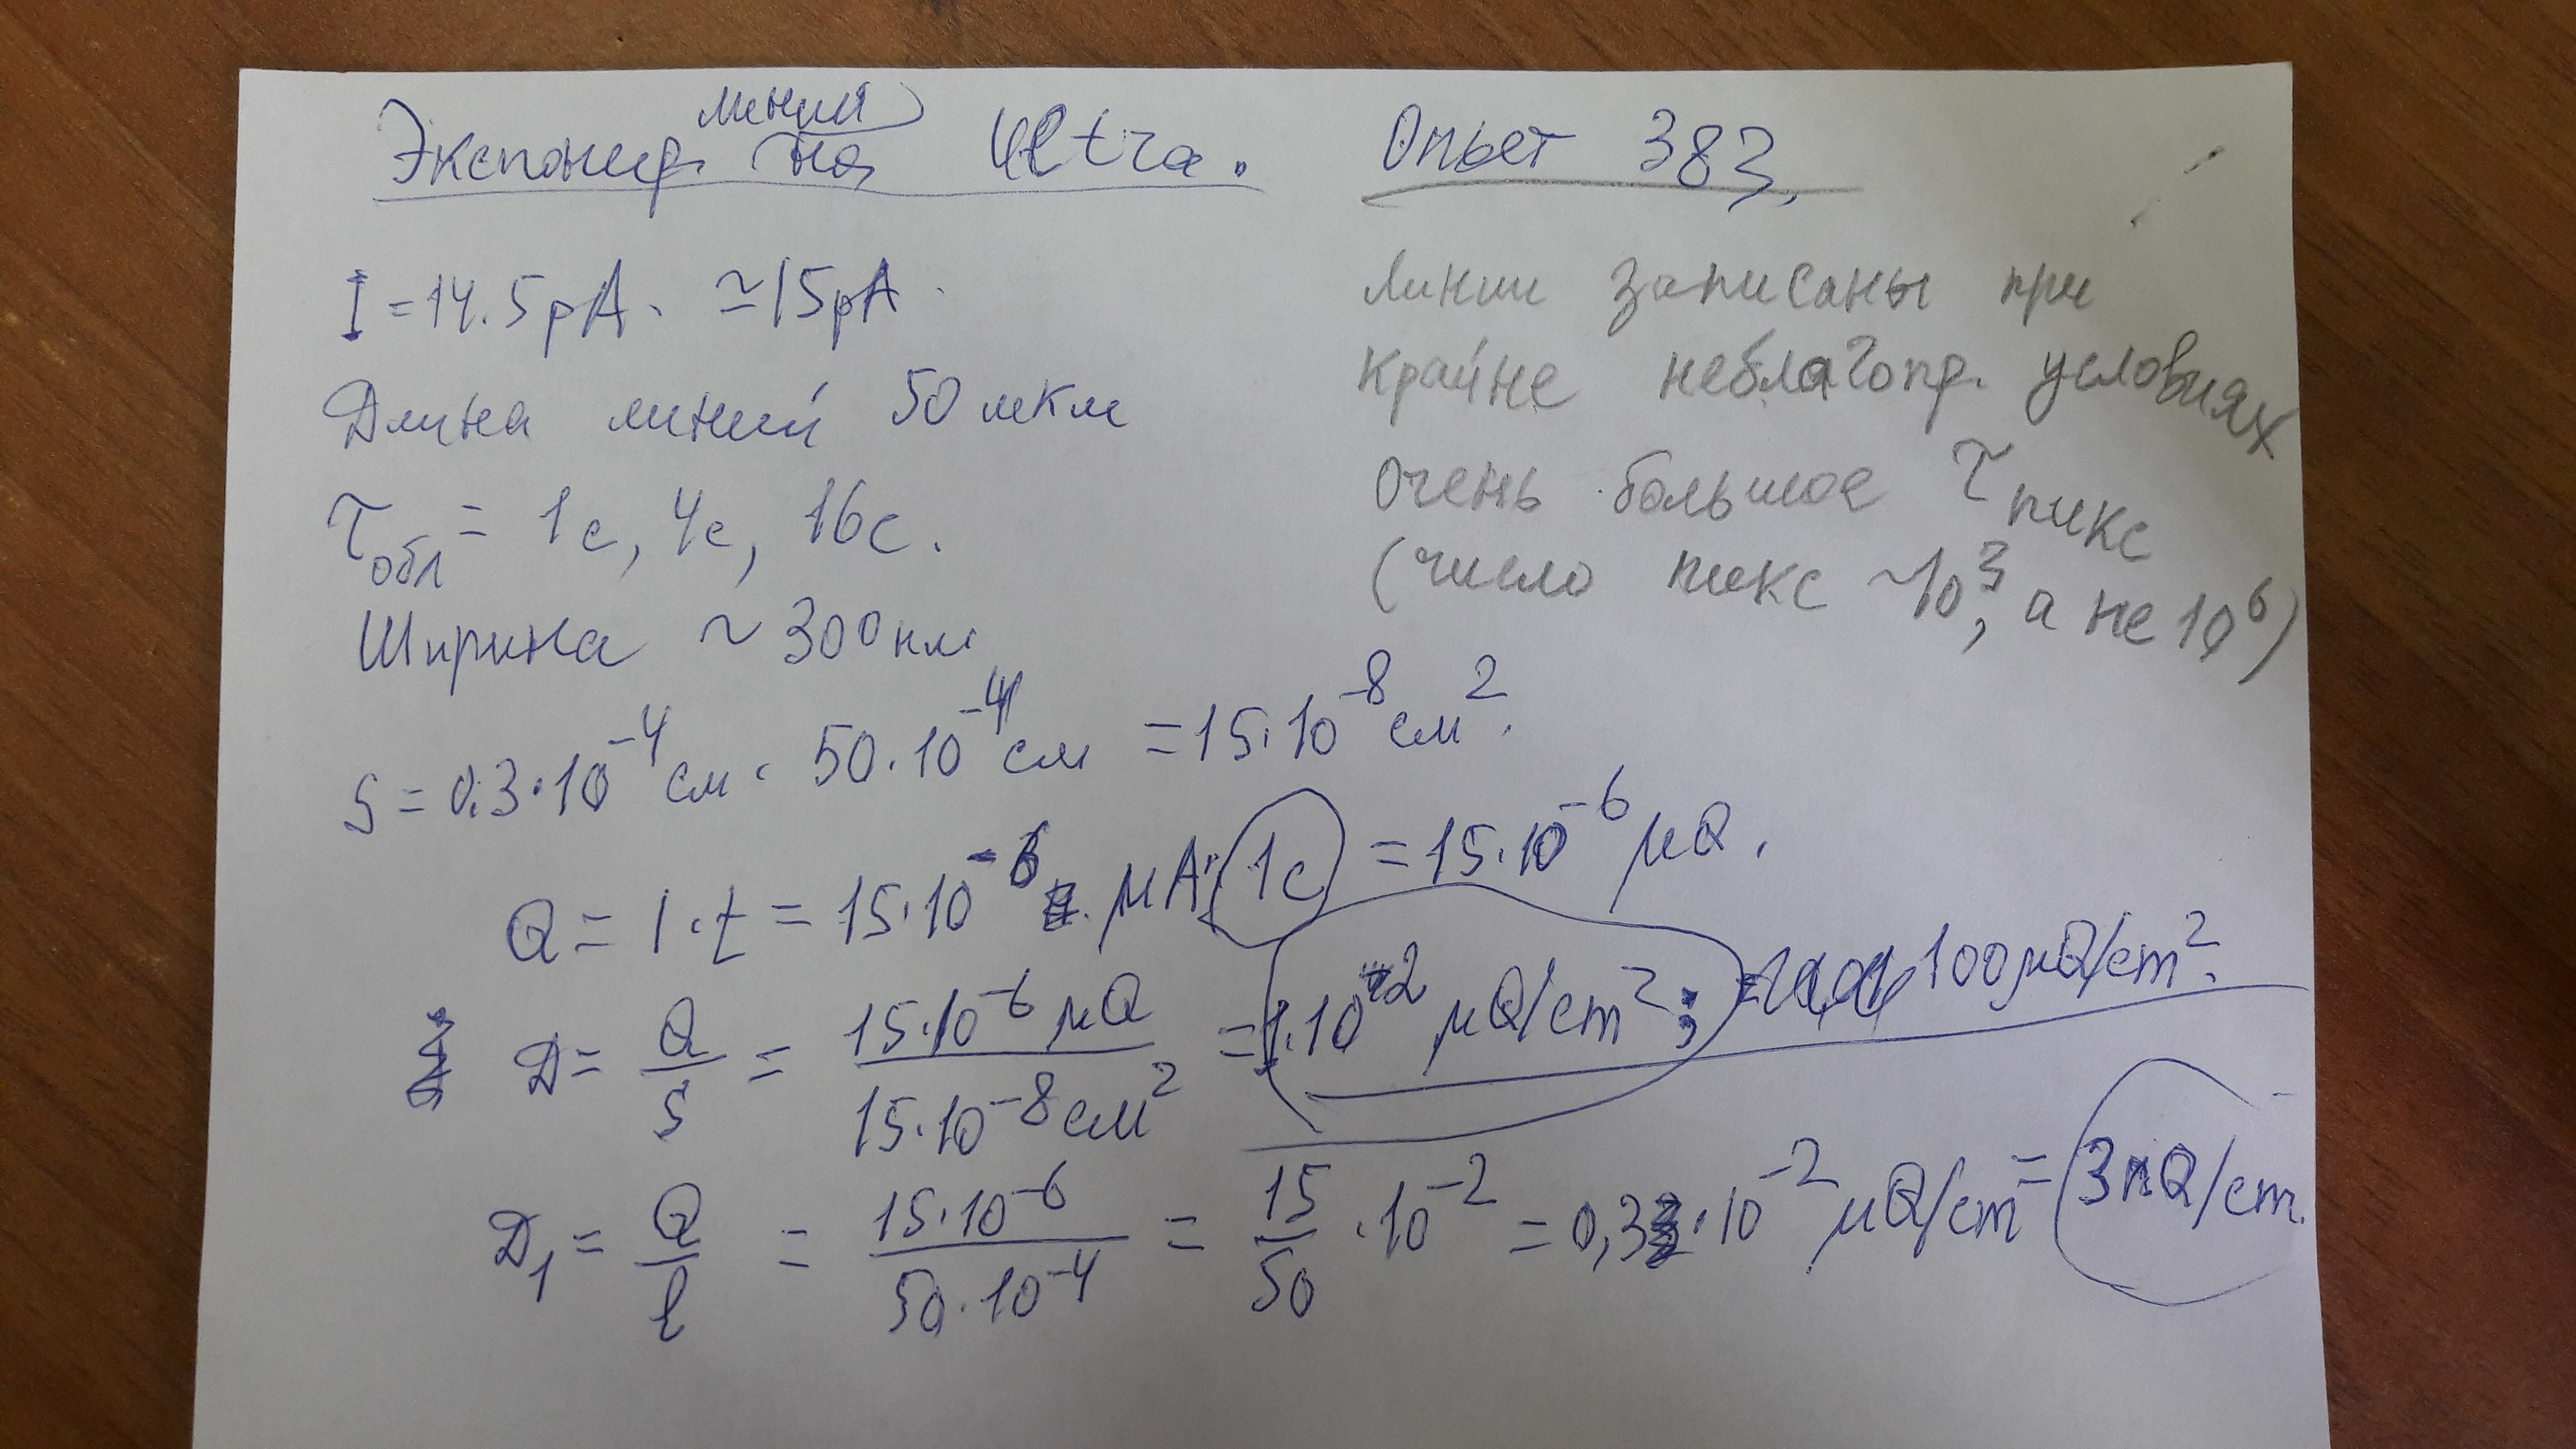 Экспонир. линий на Ultra. Опыт 383.
I = 14.5 pA. ≃ 15 pA.
Длина линий 50 мкм
τобл = 1с, 4с, 16с.
Ширина ~ 300 нм
Линии записаны при
крайне неблагопр. условиях
Очень большое τпикс
(число пикс ~10³, а не 10⁶)
S = 0.3·10⁻⁴ см · 50·10⁻⁴ см = 15·10⁻⁸ см².
Q = I·t = 15·10⁻⁶ μA·1с = 15·10⁻⁶ μQ.
D = Q/S = 15·10⁻⁶ μQ / 15·10⁻⁸ см² = 1·10² μQ/cm²; = 100 μQ/cm².
D₁ = Q/ℓ = 15·10⁻⁶ / 50·10⁻⁴ = 15/50 · 10⁻² = 0,3·10⁻² μQ/cm = 3nQ/cm.